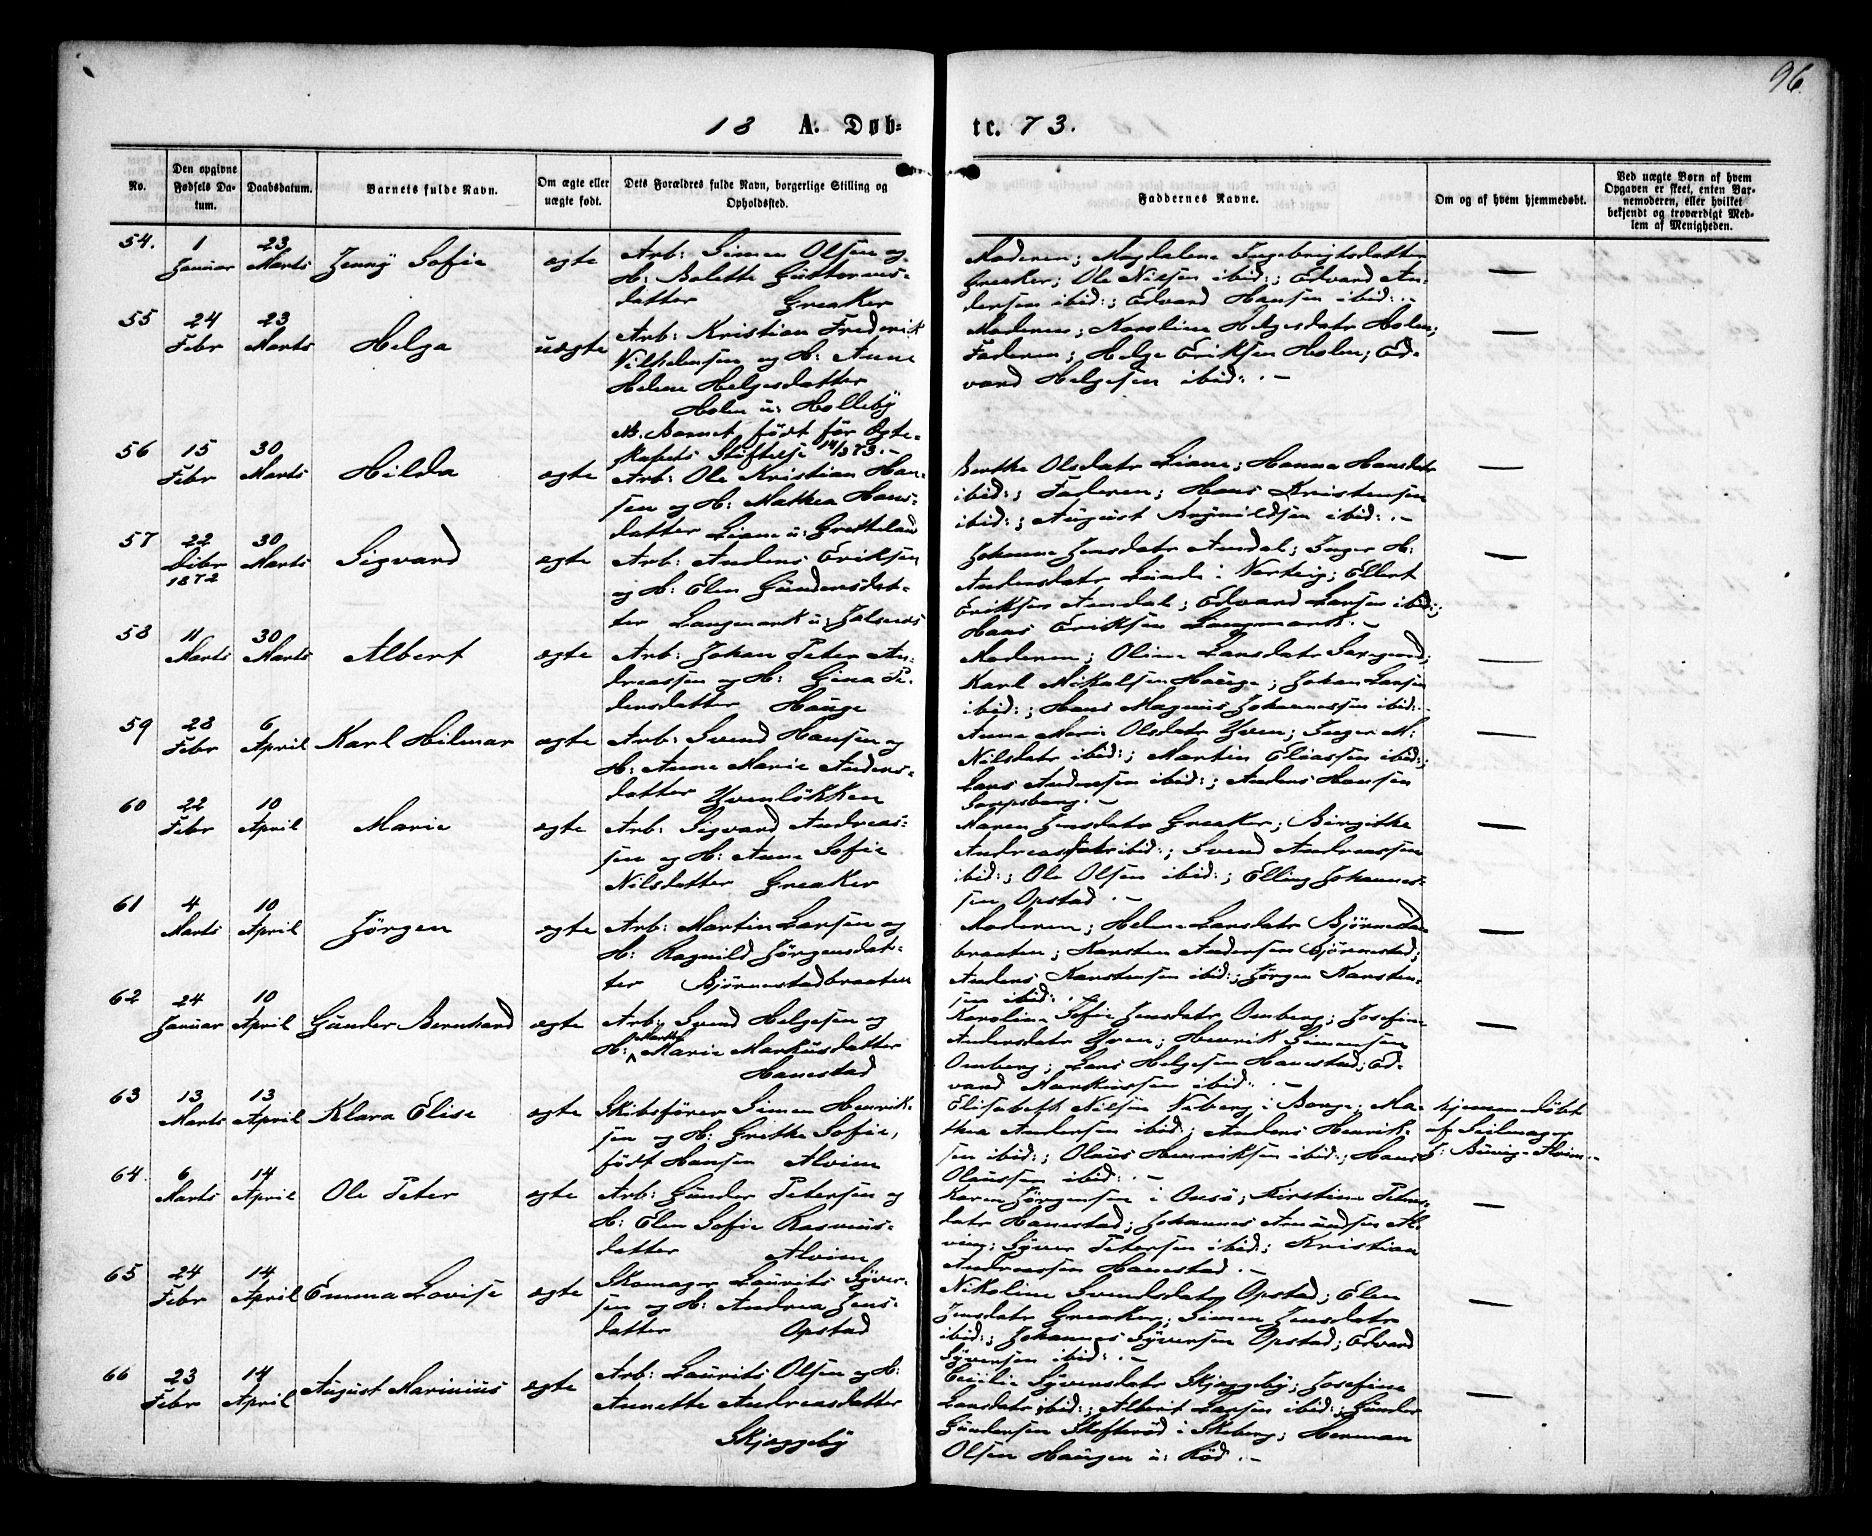 96.
18 A. Døb-
te. 73.
No.
Den opgivne Fødsels Da-
tum.
Daabsdatum.
Barnets fulde Navn.
Om ægte eller
uægte født.
Dets Forældres fulde Navn, borgerlige Stilling og
Opholdssted.
Faddernes Navne.
Om og af hvem hjemmedøbt.
Ved uægte Børn af hvem
Opgaven er skeet, enten Bar-
nemoderen, eller hvilket
bekjendt og troværdigt Med-
lem af Menigheden.
54.
1
Januar
23
Marts
Jenny Sofie
ægte
Arb: Simen Olsen og
H: Bolette Guttorms-
datter Greaker
Moderen; Magdalene Ingebrigtsdatter
Greaker; Ole Nilsen ibid:; Edvard An-
dersen ibid:; Edvard Hansen ibid:.-
55
24
Febr
23
Marts
Helga
uægte
Arb: Kristian Frederik
Vilhelmsen og H: Anne
Helene Helgesdatter
Holen u: Holleby
NB. Barnet født før Ægte-
skabets Stiftelse 14/3 73.-
Moderen; Karoline Helgesdatr Holen;
Faderen; Helge Eriksen Holen; Ed-
vard Helgesen ibid:.-
56
15
Febr
30
Marts
Hilda
ægte
Arb: Ole Kristian Han-
sen og H: Mathea Hans-
datter Liane u: Grotteland
Berthe Olsdatr Liane; Hanna Hansdatr
ibid:; Faderen; Hans Kristensen
ibid:; August ibid:.-
57
22
Debr
1872
30
Marts
Sigvard
ægte
Arb: Anders Eriksen
og H: Elen Gundersdat-
ter Langmark u:
Johanne Jensdatr Andal; Inger H:
Andersdatr Lunde i Varteig; Ellert
Eriksen Andal; Edvard Larsen ibid:;
Hans Eriksen Langmark.-
58
11
Marts
30
Marts
Albert
ægte
Arb: Johan Peter An-
dreassen og H: Gina Pe-
dersdatter Hauge
Moderen; Oline Larsdatr
Karl Nikolsen Hauge; Johan Larsen
ibid:; Hans Magnus Johannessen ibid:.-
59
28
Febr
6
April
Karl Hilmar
ægte
Arb: Svend Hansen og
H: Anne Marie Anders-
datter Yvenløkken
Anne Marie Olsdatr Yven; Inger M:
Nilsdatr ibid:; Martin Eliassen ibid:;
Lars Andersen ibid:; Anders Hansen
Sarpsborg.-
60
22
Febr
10
April
Marie
ægte
Arb: Sigvard Andreas-
sen og H: Anne Sofie
Nilsdatter Greaker
Maren Jensdatr Greaker; Birgitte
Andreasdatr ibid:; Svend Andreassen
ibid:; Ole Olsen ibid:; Elling Johannes-
sen Opstad.-
61
4
Marts
10
April
Jörgen
ægte
Arb: Martin Larsen og
H: Ragnild Jörgensdat-
ter Bjørnestadbraaten
Moderen; Helene Larsdatr Bjørnestad-
braaten; Karsten Andersen Bjørnestad;
Anders Karstensen ibid:; Jörgen Karsten-
sen ibid:.-
62
24
Januar
10
April
Gunder Bernhard
ægte
Arb: Svend Helgesen og
H: Marthe Marie Markusdatter
Hanestad
Karoline Sofie Jensdatr Omberg; Josefine
Andersdatr Yven; Henrik Simensen
Omberg; Lars Helgesen Hanestad; Ed-
vard Markussen ibid:.-
63
13
Marts
13
April
Klara Elise
ægte
Skibsfører Simen Henrik-
sen og H: Grethe Sofie,
født Hansen Alvim
Elisabeth Nilsen Naberg i Borge; Ma-
thea Andersen ibid:; Anders Henrik-
sen ibid:; Olaus Henriksen ibid:; Hans
Olaussen ibid:.-
hjemmedøbt
af Seilmager
J: Alvim.-
64.
6
Marts
14
April
Ole Peter
ægte
Arb: Gunder Petersen og
H: Elen Sofie Rasmus-
datter Alvim
Karen Jörgensen i Onsø; Kirstine Peters-
datr Hanestad; Johannes Amundsen Al-
vim; Syver Petersen ibid:; Kristian
Andreassen Hanestad.-
65
24
Febr
14
April
Emma Lovise
ægte
Skomager Laurits Syver-
sen og H: Andrea Jens-
datter Opstad
Nikoline Svendsdatr Opstad; Elen
Jensdatr Greaker; Simen Jensdatr
ibid:; Johannes Syversen Opstad; Edvard
Syversen ibid:.-
66
23
Febr
14
April
August Marinius
ægte
Arb: Laurits Olsen og H:
Annette Andreasdatter
Skjæggeby
Cecilie Syversdatr Skjæggeby; Josefine
Larsdatr ibid:; Albert Larsen ibid:; Gunder
Gundersen Skofterød i Skeberg; Herman
Olsen Haugen u: Rød.-